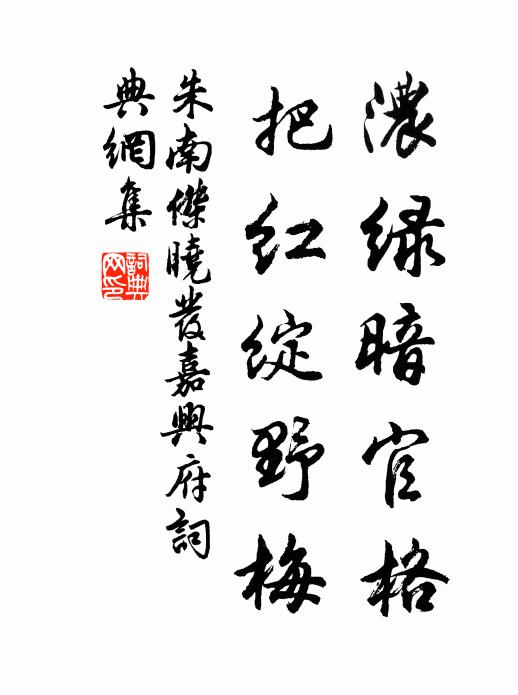 濃緑暗官格
把紅綻野梅
朱南傑曉發嘉興府詞
典網集
詞典網印